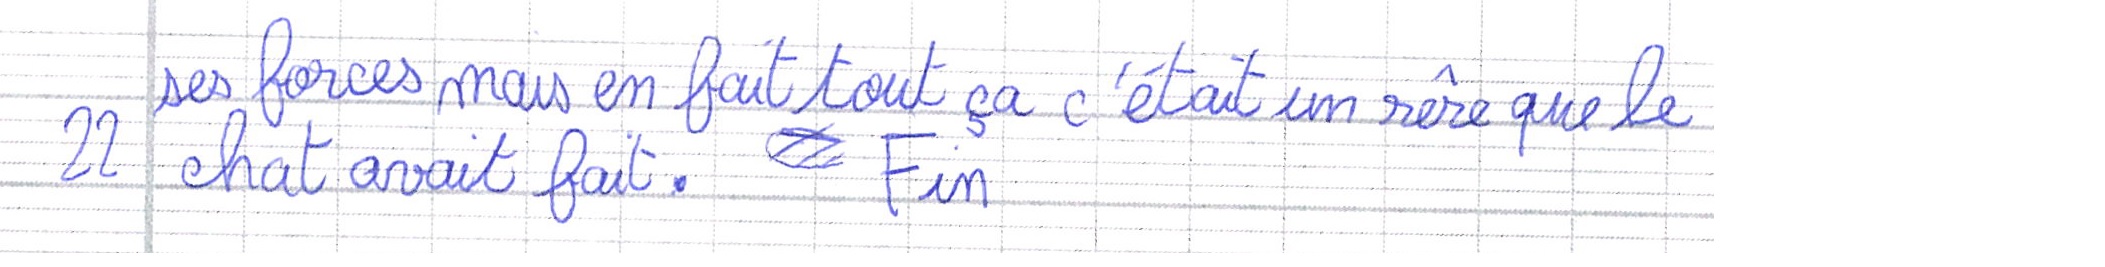 ses forces mais en fait tout ça c'était un rêve que le
22 chat avait fait. Fin